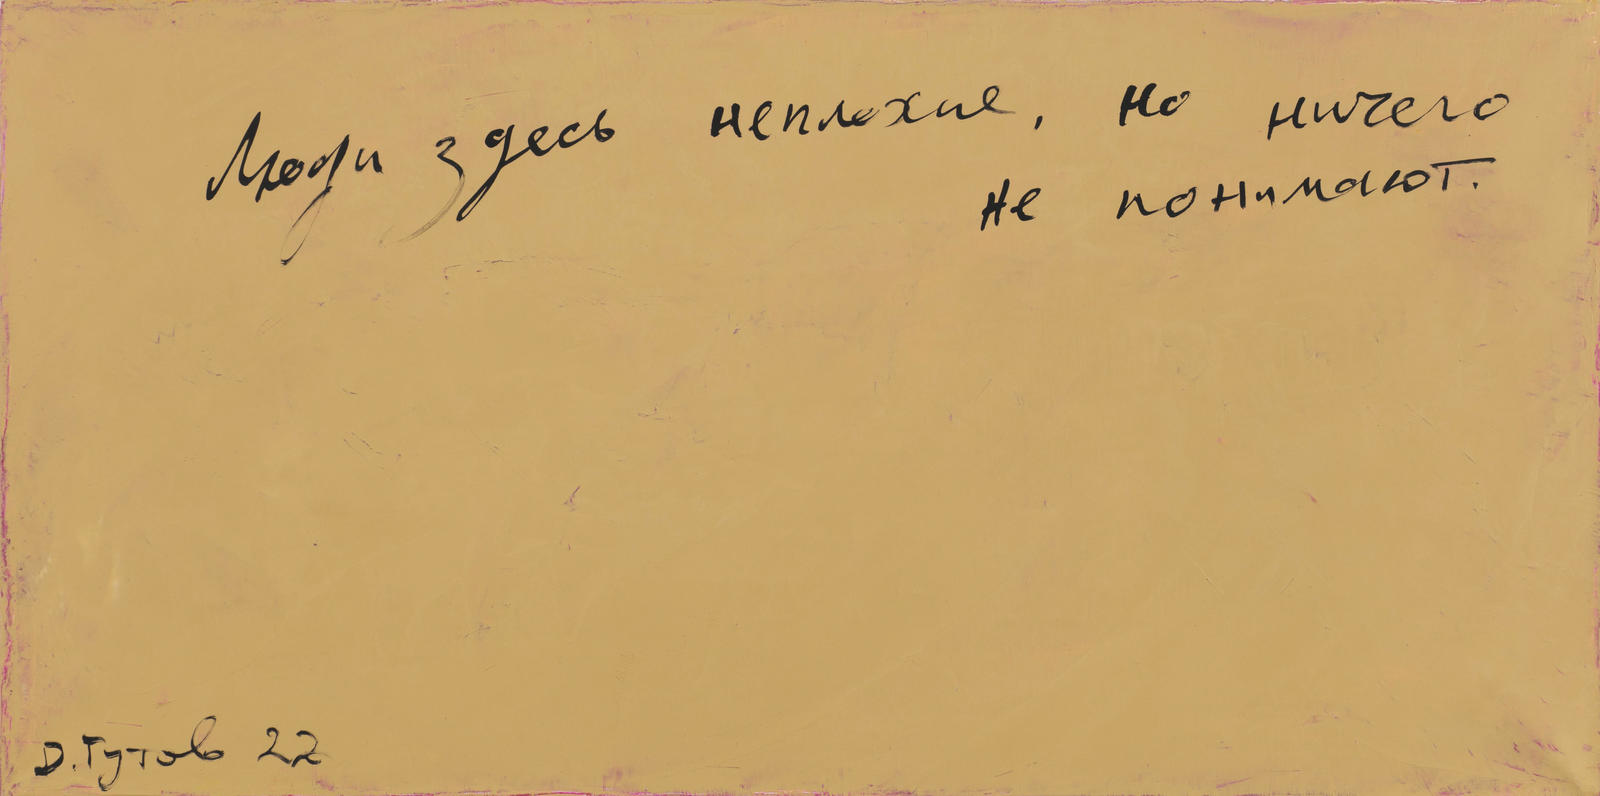 Люди здесь неплохие, но ничего
не понимают.
Д. Гутов 22